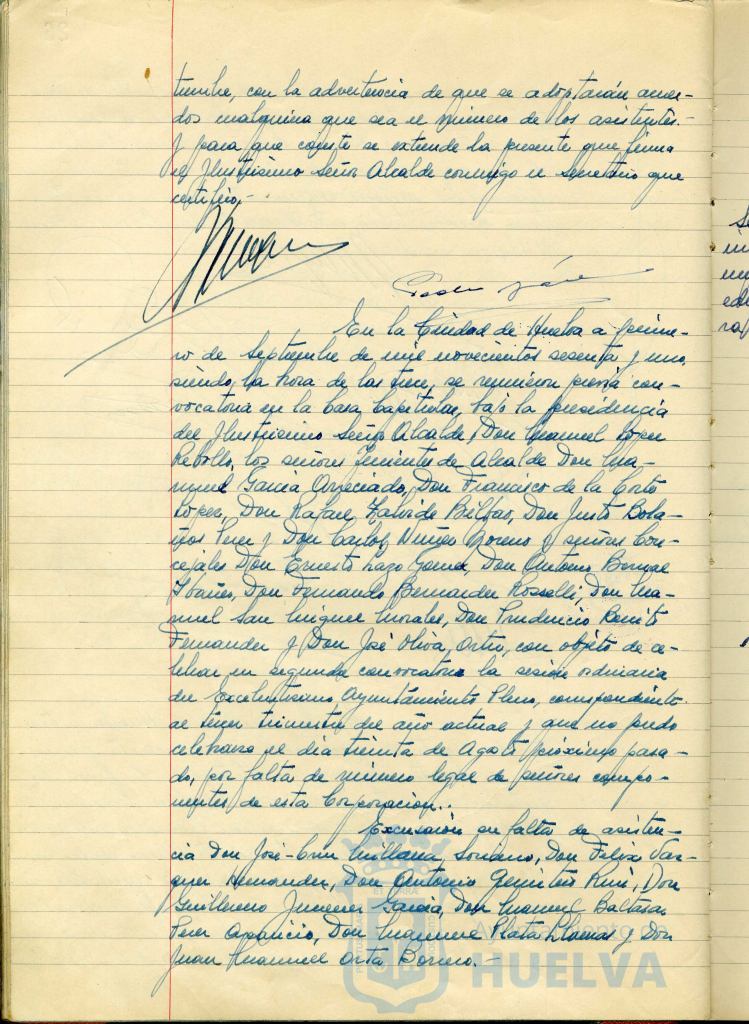 tumbre, con la advertencia de que se adoptarán acuer-
dos cualquiera que sea el número de los asistentes.-
Y para que conste se extiende la presente que firma
el Ilustrísimo Señor Alcalde conmigo el Secretario que
certifico.-
En la Ciudad de Huelva a prime-
ro de Septiembre de mil novecientos sesenta y uno,
siendo la hora de las trece, se reunieron previa con-
vocatoria en la Casa Capitular, bajo la presidencia
del Ilustrísimo Señor Alcalde, Don Manuel López
Rebollo, los señores Tenientes de Alcalde Don Ma-
nuel García Don Francisco de la Corte
López, Don Rafael Bilbao, Don Justo Bola-
ños Pérez y Don Carlos Núñez Moreno y señores Con-
cejales Don Ernesto Lazo Gómez, Don Antonio Bernal
Ibáñez, Don Fernando Bernáldez Rosselli, Don Ma-
nuel San Miguel Morales, Don Prudencio Benito
Fernández y Don José Oliva Ortiz, con objeto de ce-
lebrar en segunda convocatoria la sesión ordinaria
del Excelentísimo Ayuntamiento Pleno, correspondiente
al tercer trimestre del año actual y que no pudo
celebrarse el día treinta de Agosto próximo pasa-
do, por falta de número legal de señores compo-
nentes de esta Corporación..
Excusaron su falta de asisten-
cia Don José-Cruz Millana Soriano, Don Félix Váz-
quez Hernández, Don Antonio Ruiz, Don
Guillermo Jiménez García, Don Manuel Baltasar
Pérez Aparicio, Don Manuel Plata Llanas y Don
Juan Manuel Orta Borrero.-
Ayuntamiento de
HUELVA